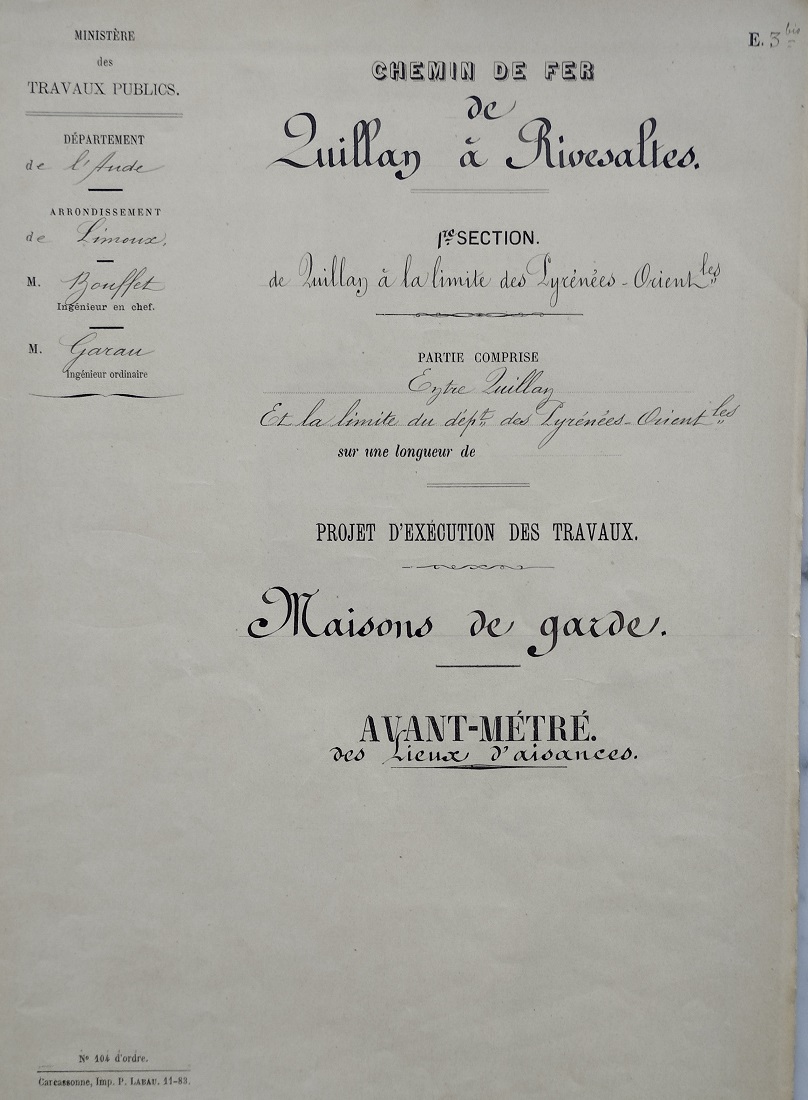 MINISTÈRE
des
TRAVAUX PUBLICS.
DÉPARTEMENT
de l'Aude
ARRONDISSEMENT
de Limoux.
M. Bouffet
Ingénieur en chef.
M. Garau
Ingénieur ordinaire
E. 3 bis
CHEMIN DE FER
de
Quillan à Rivesaltes.
1re SECTION.
de Quillan à la limite des Pyrénées-Orientles
PARTIE COMPRISE
Entre Quillan
Et la limite du dépt des Pyrénées-Orientles
sur une longueur de
PROJET D'EXÉCUTION DES TRAVAUX.
Maisons de garde.
AVANT-MÉTRÉ.
des Lieux d'aisances.
No 104 d'ordre.
Carcassonne, Imp. P. LABAU. 11-83.